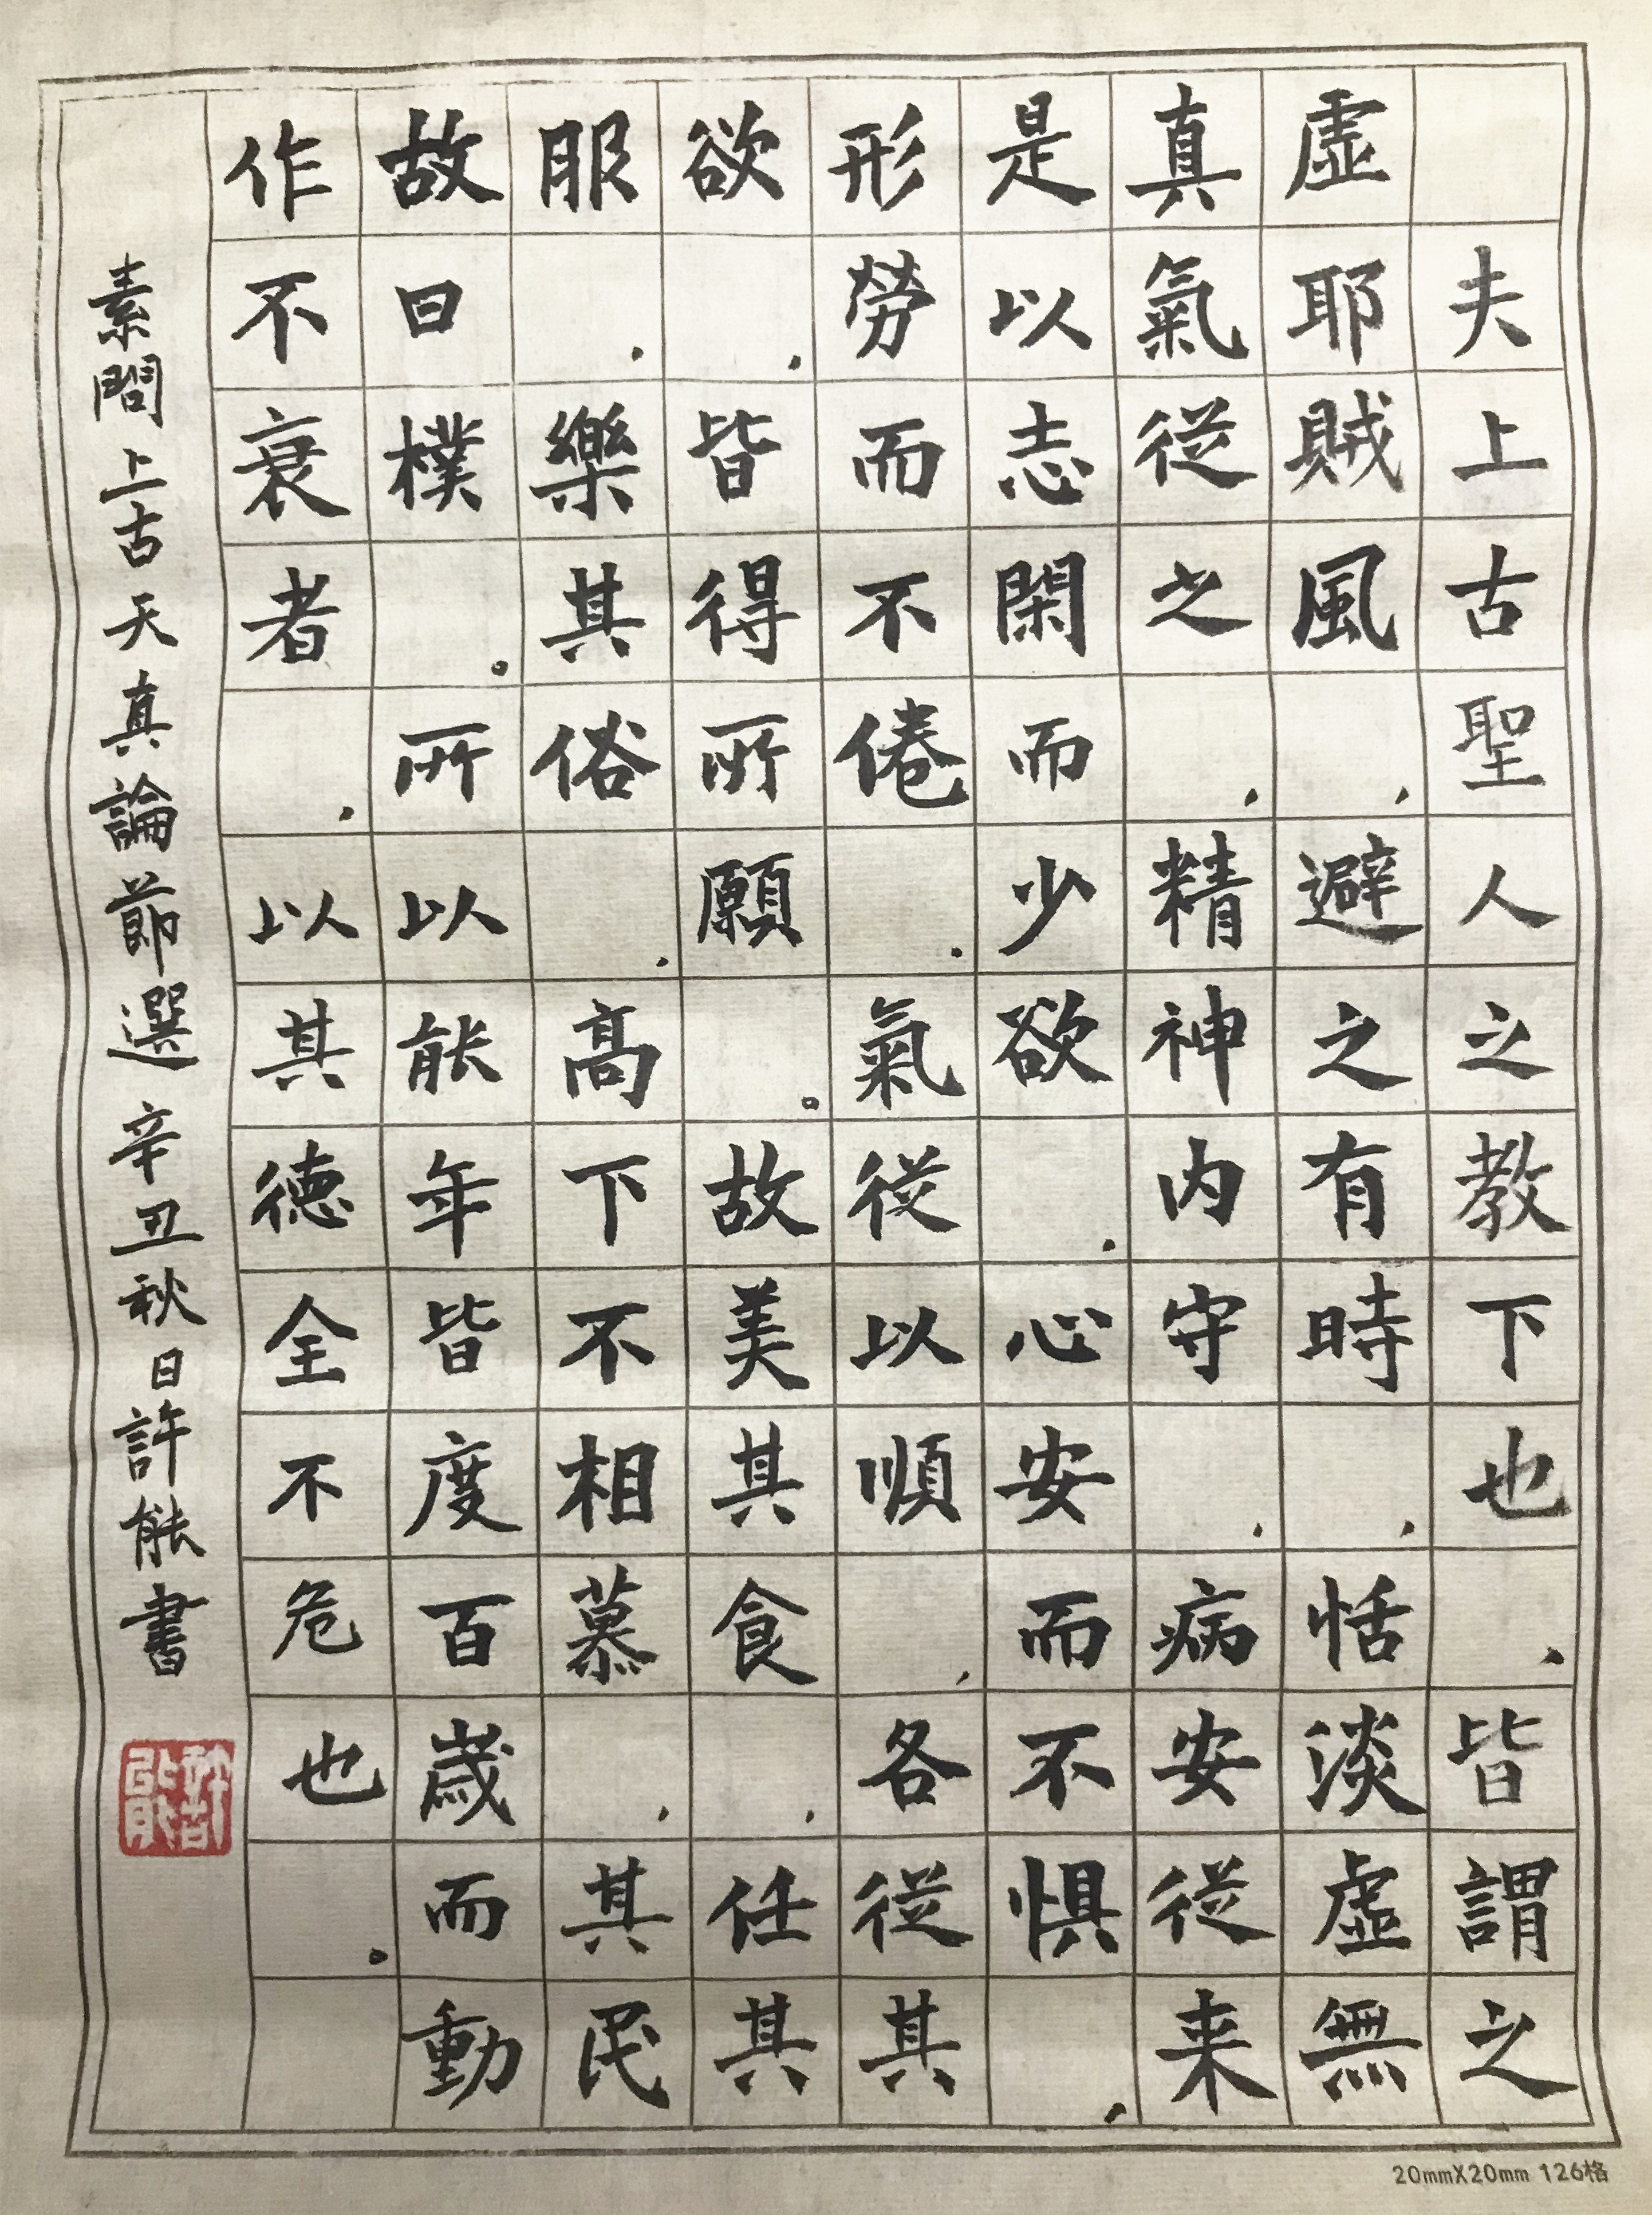 夫上古聖人之教下也，皆謂之
虛耶賊風，避之有時，恬淡虛無
真氣從之，精神內守，病安從来
是以志閑而少欲，心安而不惧，
形勞而不倦，氣從以順，各從其
欲，皆得所願。故美其食，任其
服，樂其俗，高下不相慕，其民
故曰樸。所以能年皆度百歲而動
作不衰者，以其德全不危也。
素問上古天真論節選 辛丑秋日許能書
20mmX20mm 126格